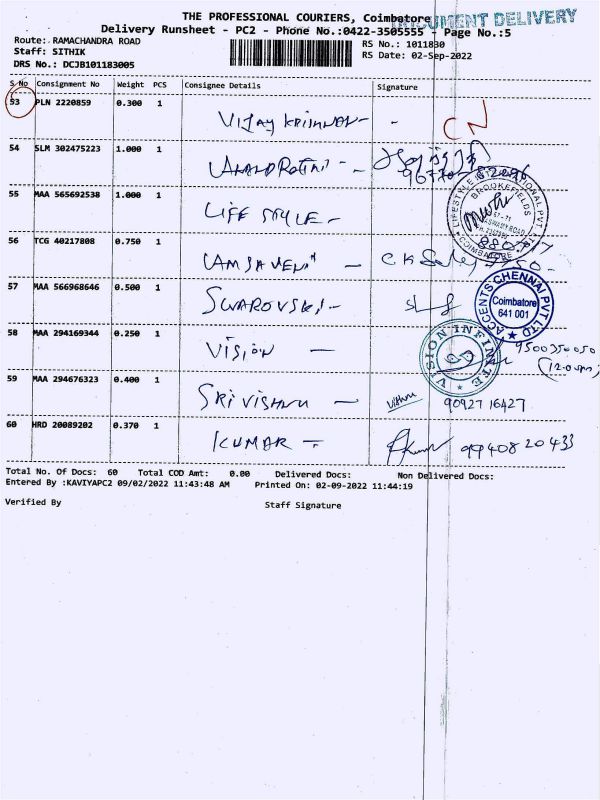 THE PROFESSIONAL COURIERS, Coimbatore
DOCUMENT DELIVERY
Delivery Runsheet - PC2 - Phone No.:0422-3505555 - Page No.:5
Route: RAMACHANDRA ROAD
RS No.: 1011830
Staff: SITHIK
RS Date: 02-Sep-2022
DRS No.: DCJB101183005
S.No Consignment No Weight PCS Consignee Details Signature
53 PLN 2220859 0.300 1 VIJAY KRISHNAN - - CN
54 SLM 302475223 1.000 1
55 MAA 565692538 1.000 1 LIFE STYLE -
LIFESTYLE INTERNATIONAL PVT.
BROOKEFIELDS
COIMBATORE
56 TCG 40217808 0.750 1
57 MAA 566968646 0.500 1 SWAROVSKI -
ACCENTS CHENNAI PVT LTD
Coimbatore
641 001
58 MAA 294169344 0.250 1 VISION — 9500350050
VISION INFINITE
59 MAA 294676323 0.400 1 SRI VISHNU — Vishnu 90927 16427
60 HRD 20089202 0.370 1 KUMAR - 99408 20433
Total No. Of Docs: 60 Total COD Amt: 0.00 Delivered Docs: Non Delivered Docs:
Entered By :KAVIYAPC2 09/02/2022 11:43:48 AM Printed On: 02-09-2022 11:44:19
Verified By Staff Signature